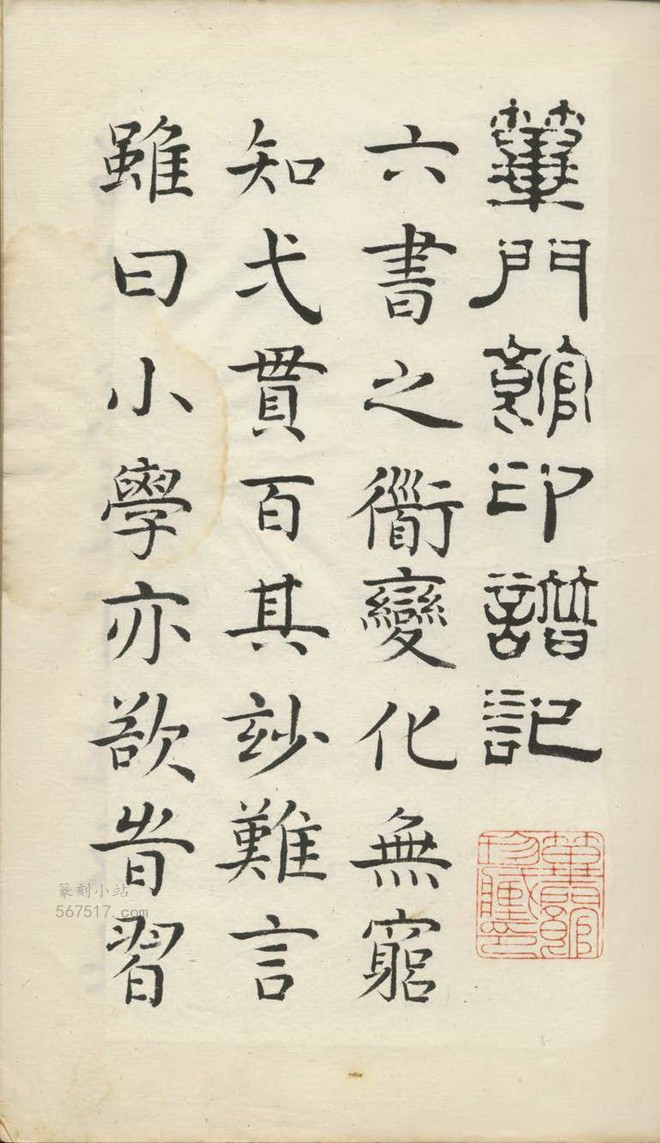 篳門館印譜記
六書之衜變化無窮
知弌貫百其玅難言
雖曰小學亦欲昔習
篳門館珍臧印
篆刻小站
567517.com